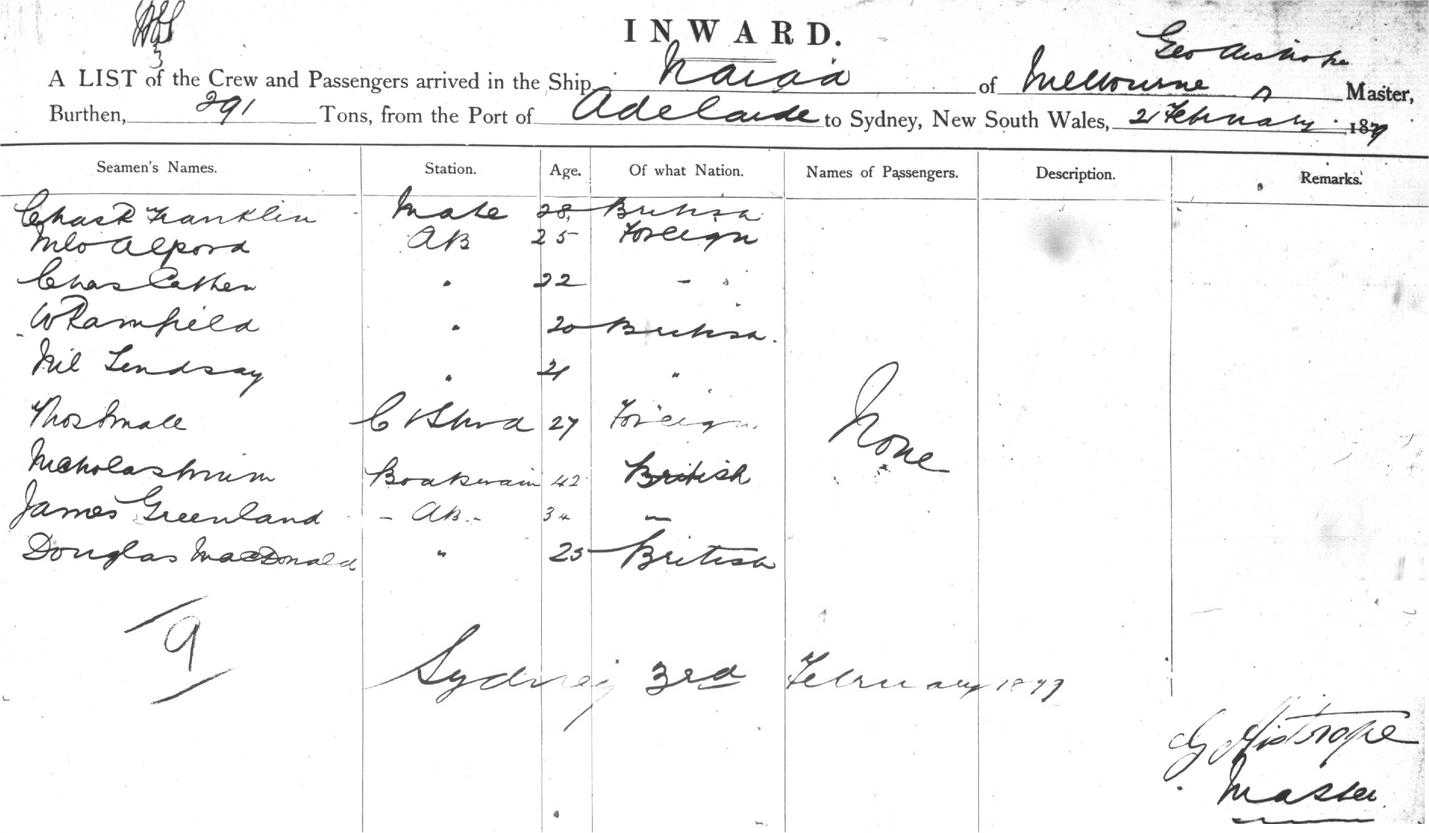 INWARD.
A LIST of the Crew and Passengers arrived in the Ship Naiad of Melbourne Geo Master,
Burthen, 291 Tons, from the Port of Adelaide to Sydney, New South Wales, 2 February 1879
Seamen's Names. Station. Age. Of what Nation. Names of Passengers. Description. Remarks.
Chas R Franklin Mate 28 British
Alpord AB 25 Foreign
Chas Cathen " 22 - "
W Ramfield " 20 British.
Neil Lendsay " 21 "
Thos Small C & Stwd 27 Foreign
Nicholas Boatswain 42 British
None
James Greenland - AB - 34 "
Douglas MacDonald " 25 British
9
Sydney 3rd February 1879
G Aistrope
Master